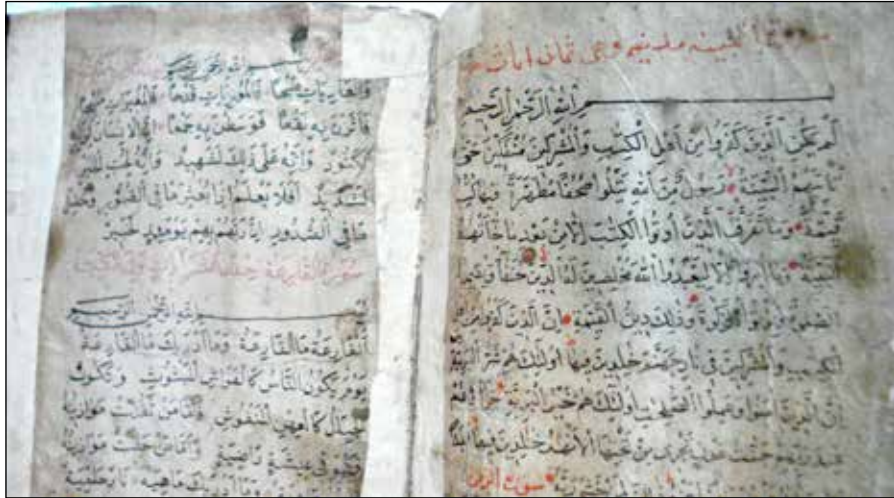 سورة البينة مدنية وهي ثمان ايات
بسم الله الرحمن الرحيم
لَمْ يَكُنِ الَّذِينَ كَفَرُوا مِنْ أَهْلِ الْكِتٰبِ وَالْمُشْرِكِينَ مُنْفَكِّينَ حَتّٰى
تَأْتِيَهُمُ الْبَيِّنَةُ رَسُولٌ مِّنَ اللهِ يَتْلُوا صُحُفًا مُطَهَّرَةً فِيهَا كُتُبٌ
قَيِّمَةٌ وَمَا تَفَرَّقَ الَّذِينَ أُوتُوا الْكِتٰبَ إِلَّا مِنْ بَعْدِ مَا جَاءَتْهُمُ
الْبَيِّنَةُ وَمَا أُمِرُوا إِلَّا لِيَعْبُدُوا اللهَ مُخْلِصِينَ لَهُ الدِّينَ حُنَفَاءَ وَيُقِيمُوا
الصَّلٰوةَ وَيُؤْتُوا الزَّكٰوةَ وَذٰلِكَ دِينُ الْقَيِّمَةِ إِنَّ الَّذِينَ كَفَرُوا مِنْ
الْكِتٰبِ وَالْمُشْرِكِينَ فِي نَارِ جَهَنَّمَ خٰلِدِينَ فِيهَا أُولٰئِكَ هُمْ شَرُّ الْبَرِيَّةِ
إِنَّ الَّذِينَ اٰمَنُوا وَعَمِلُوا الصّٰلِحٰتِ أُولٰئِكَ هُمْ خَيْرُ الْبَرِيَّةِ
جَنّٰتُ عَدْنٍ تَجْرِي مِنْ تَحْتِهَا الْأَنْهٰرُ خٰلِدِينَ فِيهَا
خَشِيَ رَبَّهُ سورة
بسم الله الرحمن الرحيم
وَالْعَادِيَاتِ ضَبْحًا فَالْمُورِيَاتِ قَدْحًا فَالْمُغِيرَاتِ صُبْحًا
فَأَثَرْنَ بِهِ نَقْعًا فَوَسَطْنَ بِهِ جَمْعًا إِنَّ الْإِنْسَانَ لِرَبِّهِ
لَكَنُودٌ وَإِنَّهُ عَلَى ذٰلِكَ لَشَهِيدٌ وَإِنَّهُ لِحُبِّ الْخَيْرِ
لَشَدِيدٌ أَفَلَا يَعْلَمُ إِذَا بُعْثِرَ مَا فِي الْقُبُورِ وَحُصِّلَ
مَا فِي الصُّدُورِ إِنَّ رَبَّهُمْ بِهِمْ يَوْمَئِذٍ لَخَبِيرٌ
سورة القارعة
بسم الله الرحمن الرحيم
اَلْقَارِعَةُ مَا الْقَارِعَةُ وَمَا أَدْرٰيكَ مَا الْقَارِعَةُ
يَوْمَ يَكُونُ النَّاسُ كَالْفَرَاشِ الْمَبْثُوثِ وَتَكُونُ
الْجِبَالُ كَالْعِهْنِ الْمَنْفُوشِ فَأَمَّا مَنْ ثَقُلَتْ مَوَازِينُهُ
فَهُوَ فِي عِيشَةٍ رَاضِيَةٍ وَأَمَّا مَنْ خَفَّتْ مَوَازِينُهُ
وَمَا أَدْرٰيكَ مَاهِيَهْ نَارٌ حَامِيَةٌ